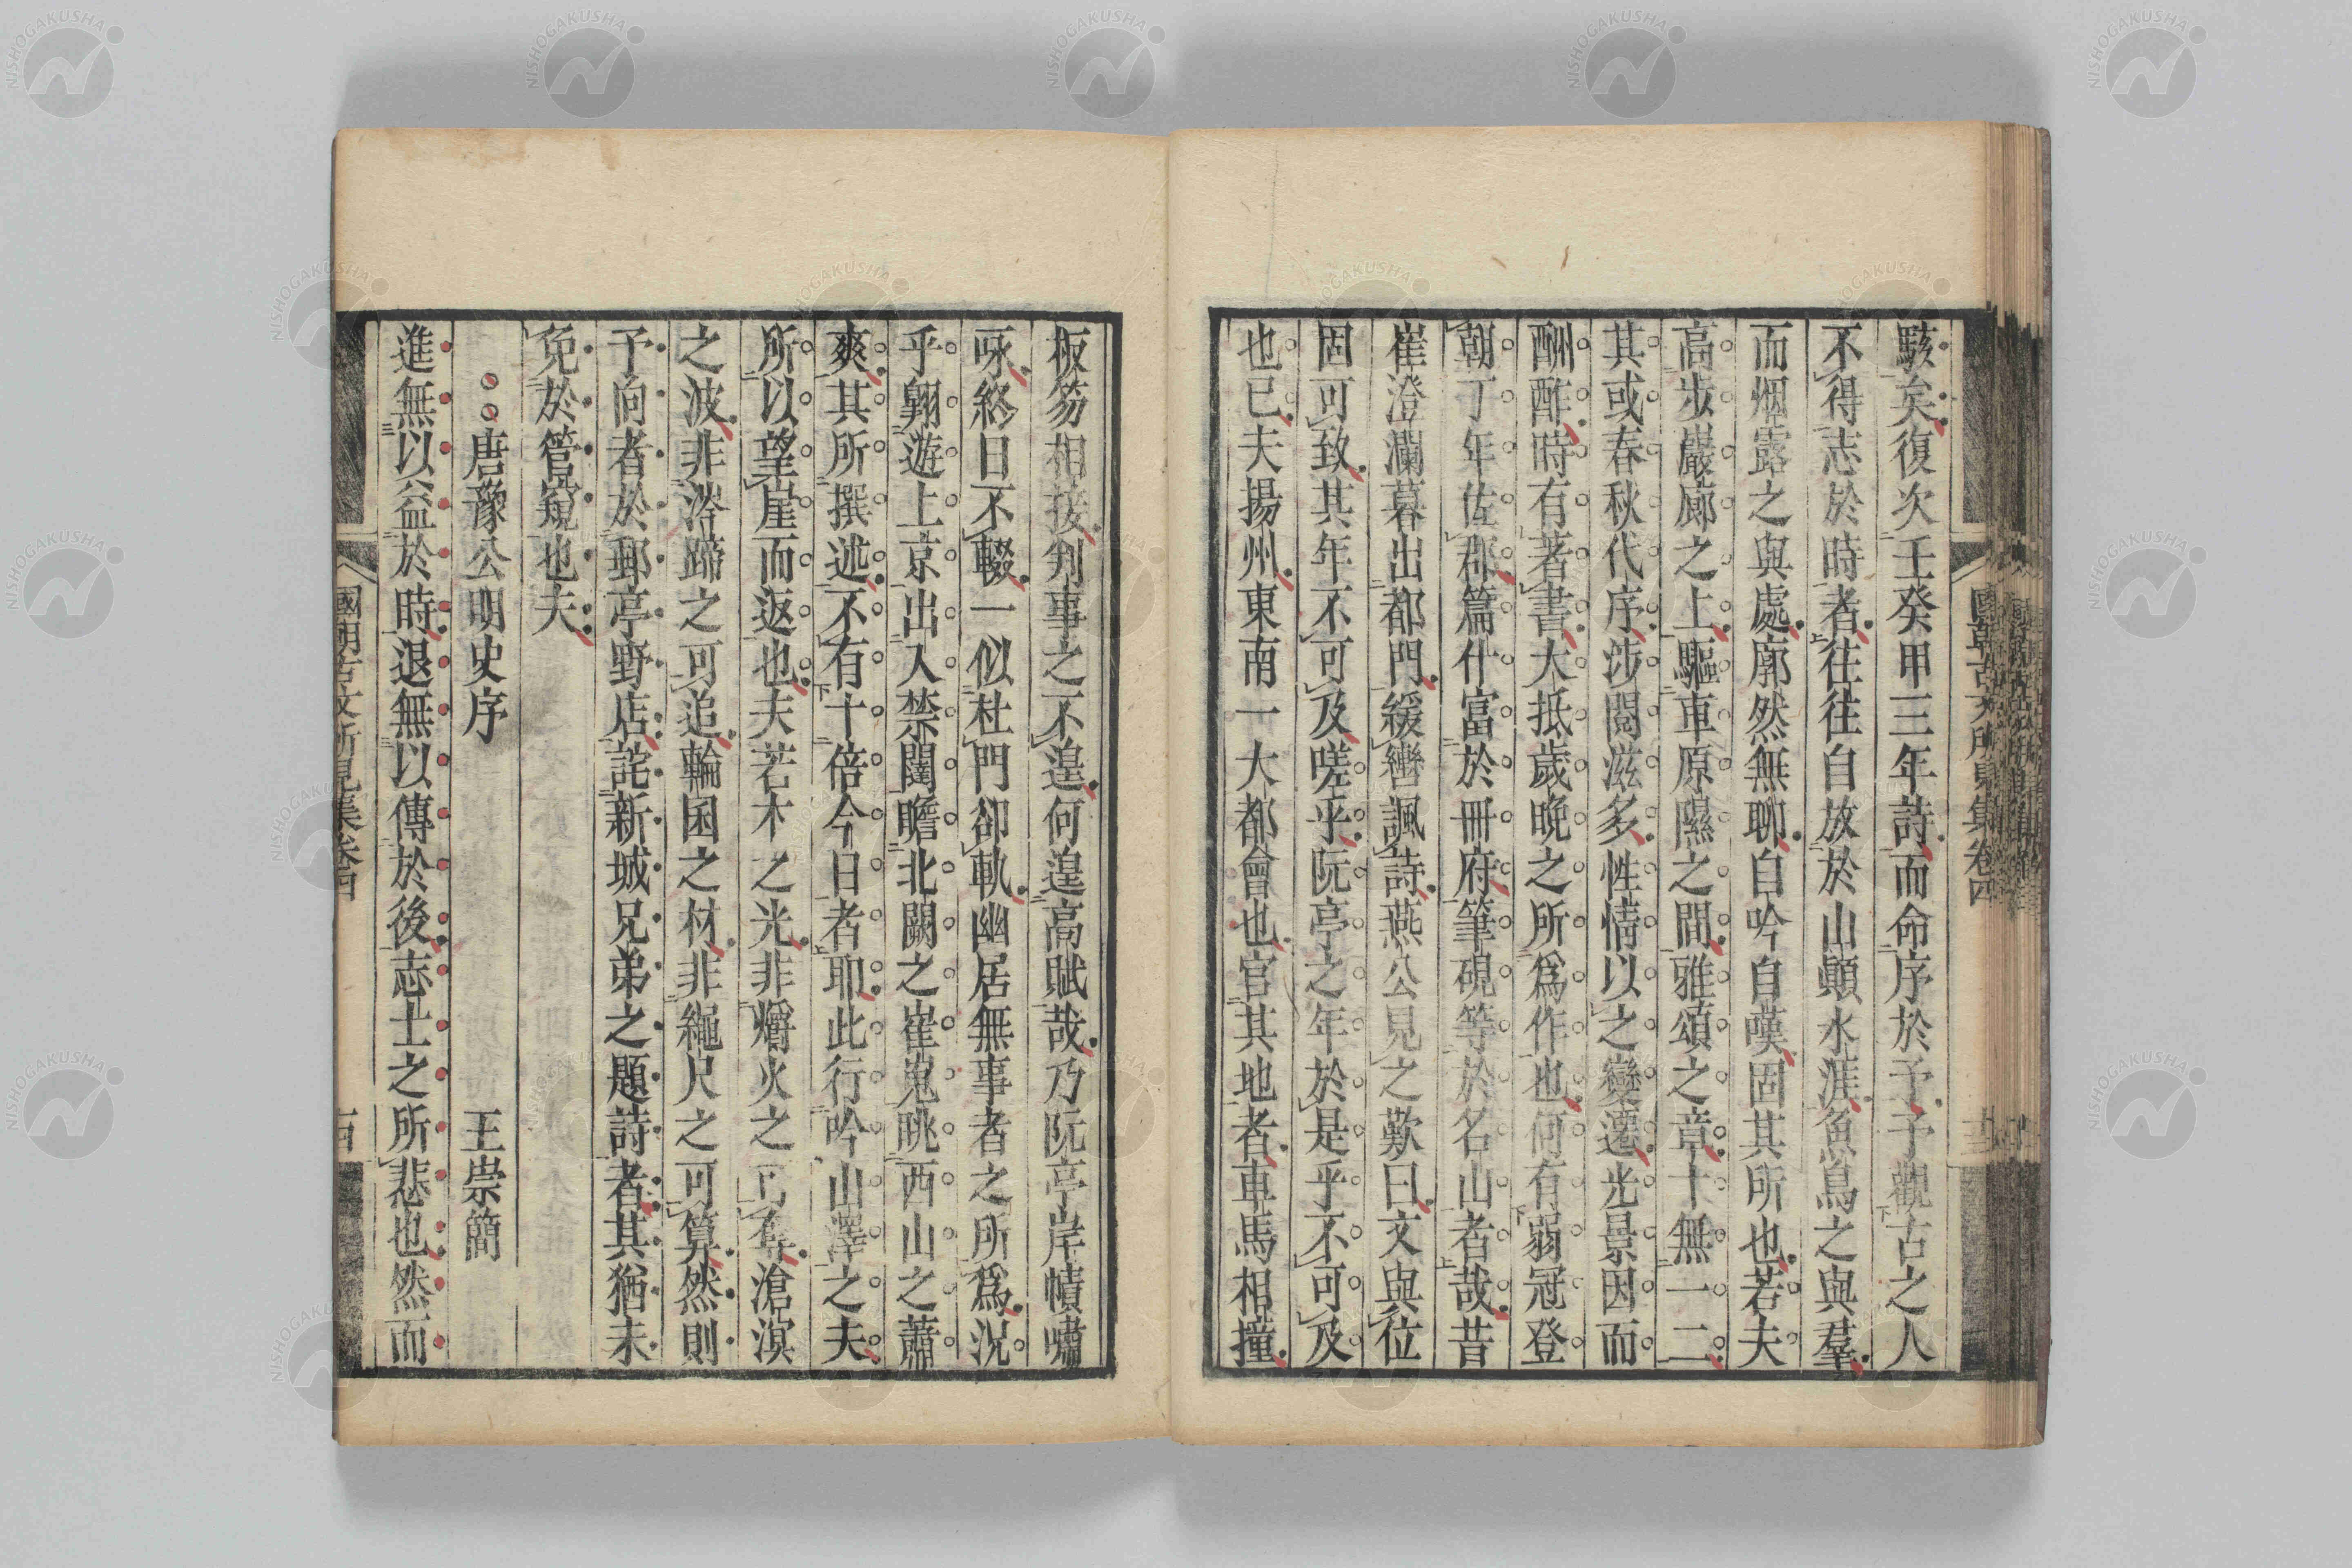 駭矣復次壬癸甲三年詩而命序於予予觀古之人
不得志於時者往往自放於山顚水涯魚鳥之與羣
而烟露之與處廓然無聊自吟自嘆固其所也若夫
高步巖廊之上驅車原隰之間雅頌之章十無一二
其或春秋代序涉閱滋多性情以之變遷光景因而
酬酢時有著書大抵歲晚之所爲作也何有弱冠登
朝丁年佐郡篇什富於冊府筆硯等於名山者哉昔
崔澄瀾暮出都門緩轡諷詩燕公見之歎曰文與位
固可致其年不可及嗟乎阮亭之年於是乎不可及
也已夫揚州東南一大都會也官其地者車馬相撞
國朝古文所見集卷四
板笏相接判事之不遑何遑高賦哉乃阮亭岸幘嘯
咏終日不輟一似杜門卻軌幽居無事者之所爲況
乎翺遊上京出入禁闥瞻北闕之崔嵬眺西山之蕭
爽其所撰述不有十倍今日者耶此行吟山澤之夫
所以望崖而返也夫若木之光非爝火之可奪滄溟
之波非涔蹄之可追輪囷之材非繩尺之可算然則
予向者於郵亭野店詫新城兄弟之題詩者其猶未
免於管窺也夫
唐豫公明史序 王崇簡
進無以益於時退無以傳於後志士之所悲也然而
國朝古文所見集卷四